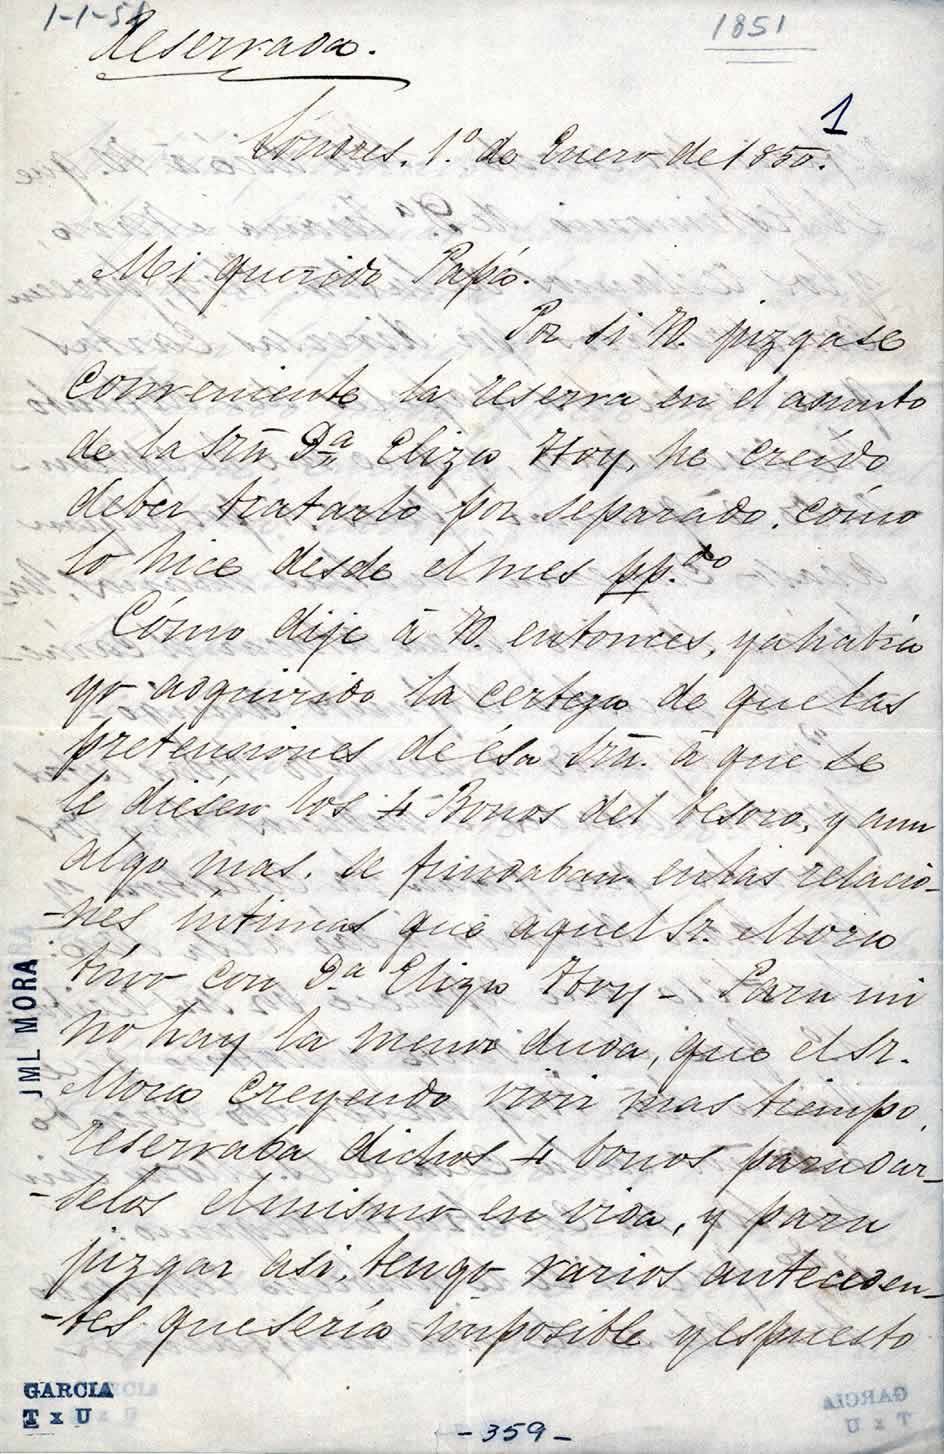 1-1-51
1851
Reservada.
1
Lóndres. 1.º de Enero de 1850.
Mi querido Papá.
Por si V. juzgase
conveniente la reserva en el asunto
de la Srã D.ª Eliza Hoy, he creído
deber tratarlo por separado, cómo
lo hice desde el mes pp.do
Cómo dije á V. entonces, ya habia
yo adquirido la certeza de que las
pretensiones de ésa Srã. á que se
le diésen los 4 Bonos del tesoro, y aun
algo mas, se fundaban en las relacio-
-nes íntimas que aquel Sr. Mora
túvo con D.ª Eliza Hoy - Para mi
no hay la menor duda, que el Sr.
Mora creyendo vivir mas tiempo,
reservaba dichos 4 bonos para dar-
-selos el mismo en vida, y para
juzgar asi, tengo varios anteceden-
-tes que sería imposible y espuesto
JML MORA
GARCIA
T x U
-359-